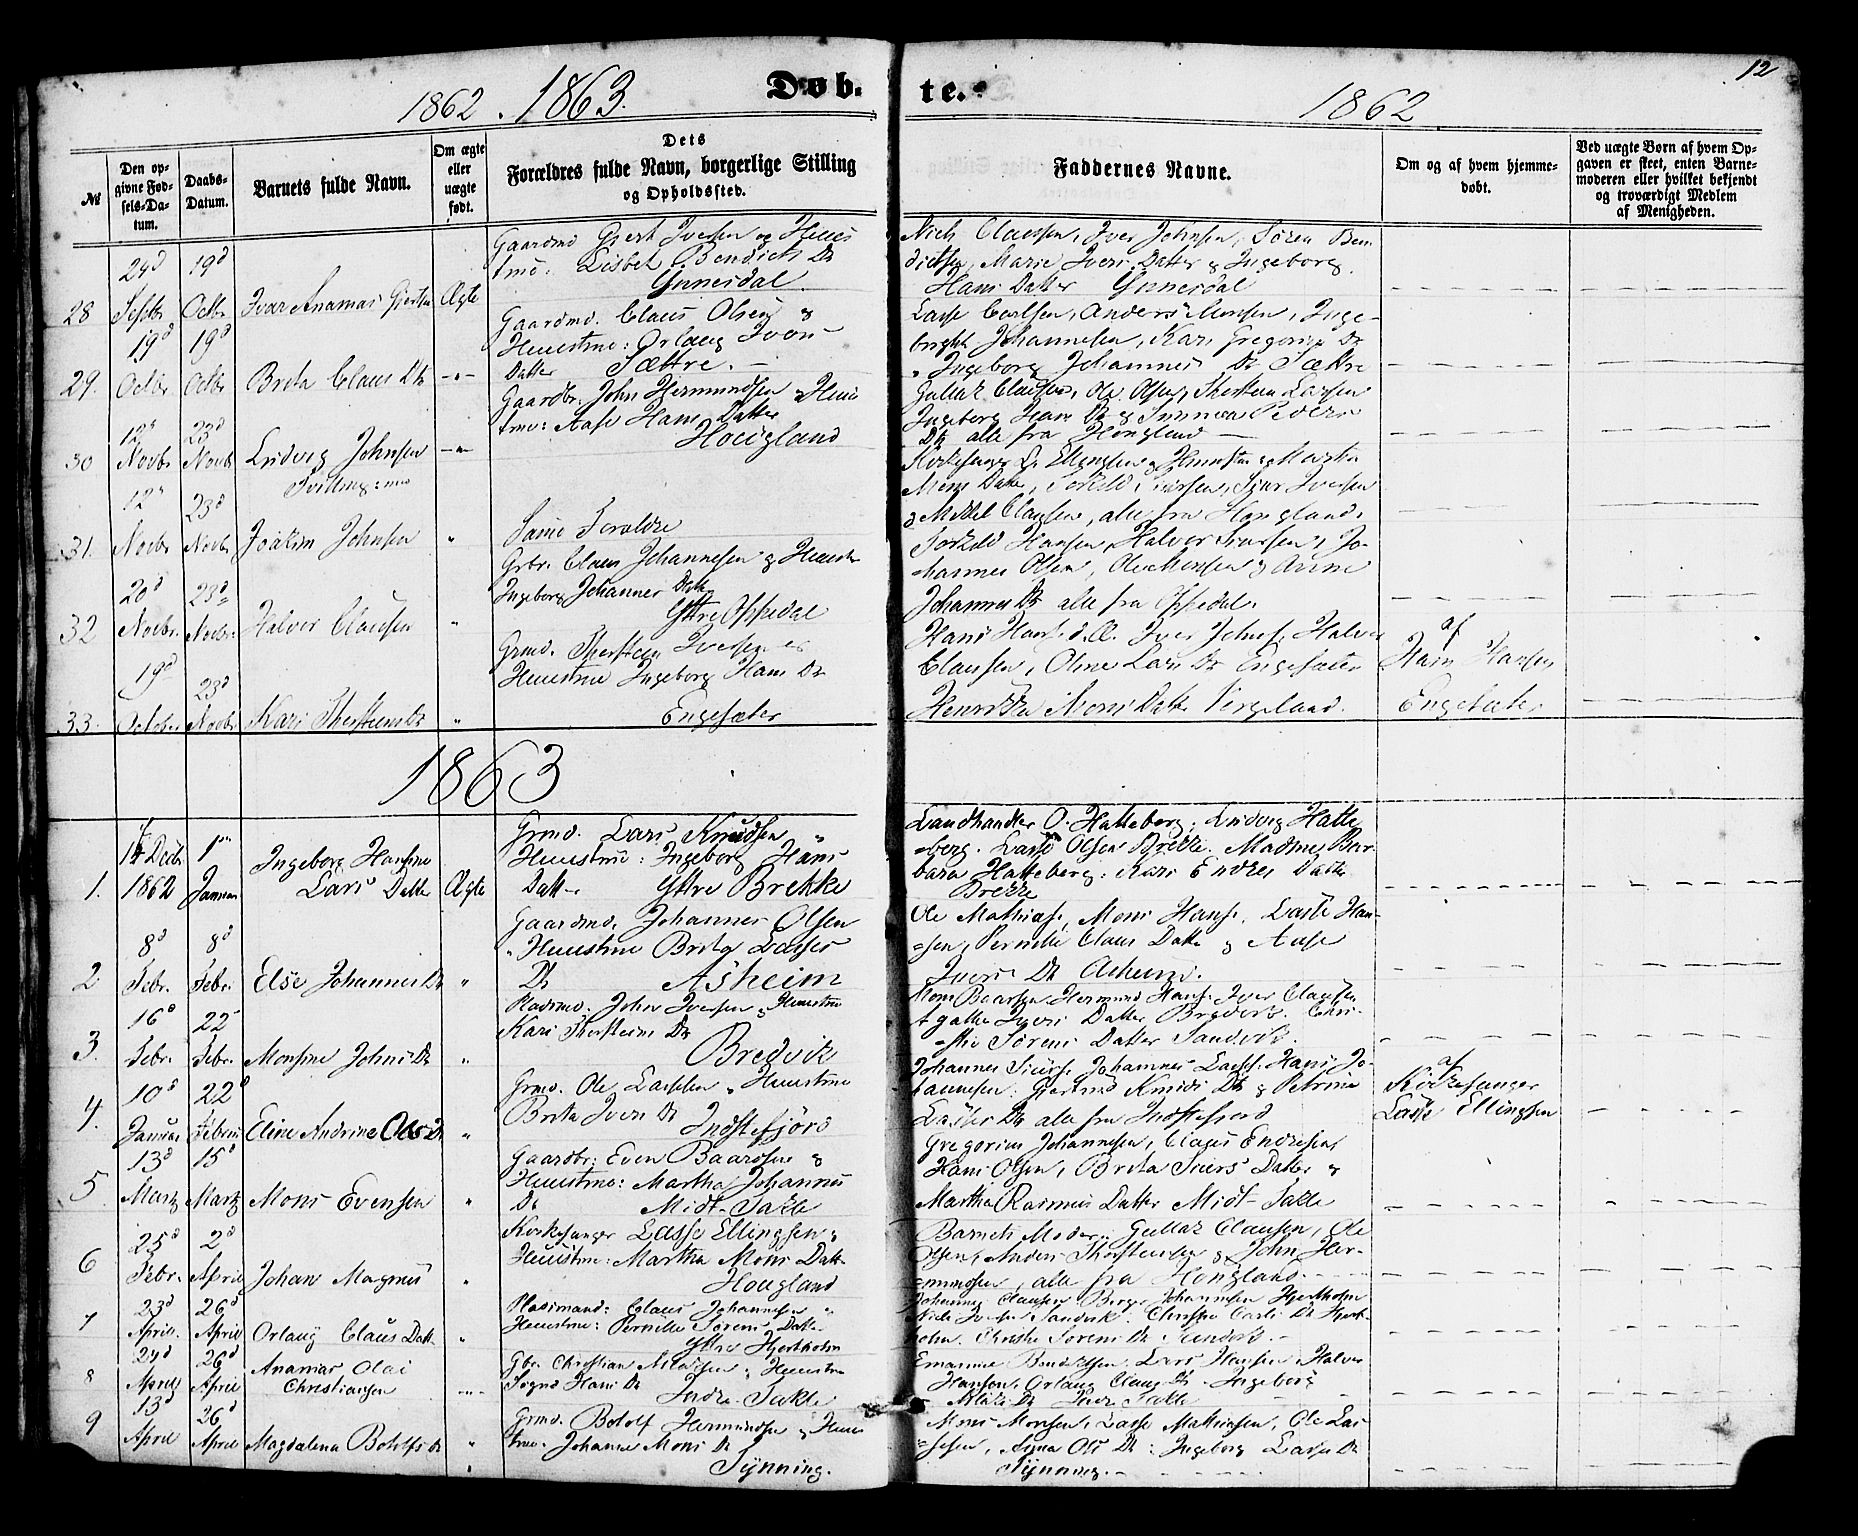 12
1862. 1863.
Døb.
te.
1862
№
Den opgivne Fødsels-Datum.
Daabs-Datum.
Barnets fulde Navn.
Om ægte eller uægte født.
Dets Forældres fulde Navn, borgerlige Stilling og Opholdssted.
Faddernes Navne.
Om og af hvem hjemmedøbt.
Ved uægte Børn af hvem Opgaven er skeet, enten Barnemoderen eller hvilket bekjendt og troværdigt Medlem af Menigheden.
28
Septbr
19d
Octbr
Ivar Anamas
Ægte
Gaardmd Gjert Iversen og Huus
tme: Lisbet Bendicts Dr
Ynnesdal.
Niels Claussen, Iver Johnsen, Søren Ben
dictsen, Marie Ivers Datter & Ingeborg
Hans Datter Ynnesdal
29.
19d
Octbr
19d
Octbr
Brita Claus Dtr
Gaardmd. Claus Olsen &
Huustme: Orlaug Ivers
Datter Sættre.
Lasse Carlsen, Anders Monsen, Inge-
bright Johannesen, Kari Gregorius Dr
Ingeborg Johannes Dr Sættre
30
12d
Novbr
23d
Novbr
Ludvig Johnsen
Gaardbr. John Hermundsen & Huus
tme: Aase Hans Datter
Hougland
Gullak Clausen, Ole Olsen, Thosten Larsen
Ingeborg Hans Dr & Sunneva Peders
Dtr alle fra Hougland
31.
12d
Novbr
23d
Novbr
Joakim Johnsen
Samme Foraldre
Kirkesanger L. Ellingsen & Huustru Martha
Mons Datter
& Mikkel Clausen, alle fra Hougland.
32
20d
Novbr.
23d
Novbr.
Halver Clausen
Grbr. Claus Johannesen & Huustr
Ingeborg Johannes Dattr
Yttre Oppedal
Torkild Hansen, Halver Siursen, Jo-
hannes Olsen, Ole Monsen & Anne
Johannes Dr alle fra Oppedal.
33.
19d
October
23d
Novbr
Kari Thersteins Dr
Grmd. Thersteen Iversen &
Huustme Ingeborg Hans Dr
Engesæter
Clausen, Oline Lars Dr Engesæter
Henrikka Mons Datter Vergeland.
af
Hans Hansen
Engesæter
1863
1.
14 Decbr
1862
1ste
Januar
Ingeborg Hansine
Lars Datter
Ægte
Grmd. Lars Knudsen &
Huustme: Ingeborg Hans
Datter Yttre Brekke
Landhandler O. Hatteberg, Ludvig Hatte
-berg. Lasse Olsen Brekke. Madme Bar-
bara Hatteberg. Kari Endres Datter
Brekke
2
8d
Febr.
8d
Febr.
Else Johannes Dr
Gaardmd. Johannes Olsen
& Huustme Brita Lasses
Dr Asheim
Ole Mathias., Mons Hans., Lasse Han-
-sen, Pernille Claus Datter & Aase
Ivers Dr Asheim.
3.
16d
Febr.
22
Febr.
Monsine Johns Dr
Pladsmd: John Iversen & Huustme
Kari Thersteins Dr
Bredvik
Mons Baarsen. Hermund Hans. Iver Clausen
Agatha Ivers Datter Bredvik. Chri-
-stie Sørens Datter Sandvik.
4.
10d
Januar
22d
Februar
Eline Andrine Ols Dr
Grmd. Ole Lassesen & Huustme
Brita Ivers Dr
Indstefjord
Johannes Siurs. Johannes Lasses. Hans Jo-
hannesen. Gjertrud Knuds Dr & Petrine
Lasses Dr alle fra Indstefjord
af
Kirkesanger
Lasse Ellingsen
5.
13d
Martz
15d
Martz
Mons Evensen
Gaardbr: Even Baardsen &
Huustme: Martha Johannes
Dr Midt-Takle
Gregorius Johannesen, Claus Endresen,
Hans Olsen, Brita Siurs Datter &
Martha Rasmus Datter Midt-Takle
6
25d
Febr.
2d
April
Johan Magnus
Kirkesanger Lasse Ellingsen &
Huustme: Martha Mons Dattr
Hougland
Barnets Moder. Gullak Clausen, Ole
Olsen, Anders Thorstensen & John Her-
-mundsen, alle fra Hougland.
7
23d
April.
26d
April
Orlaug Claus Dattr
Pladsmand: Claus Johannesen &
Huustme: Pernille Sørens Datter
Yttre Hjertholm
Johannes Clausen, Børge Johannesen Hjertholm
Niels Ivers. Sandvik. Christie Carls Dr Hjert-
holm. Christie Sørens Dr Sandvik.
8
April
26d
April
Anamas Olai
Christiansen
Gbr. Christian Nilssen & Huustme
Sogned Hans Dr
Indre Takle
Emanuel Bendixsen. Lars Hansen Halver
Hanson. Orlaug Claus Dr. Ingeborg
Dr Indre Takle
9
13d
April
26d
April
Magdalena Botolfs Dr
Grmd. Botolf Hermundsen & Huus
tme. Johanne Mons Dr
Tynning.
Mons Monsen, Lasse Mathiasen, Ole Las-
-sesen, Anna Ols Dr: Ingeborg Lasses Dr
Tynning.